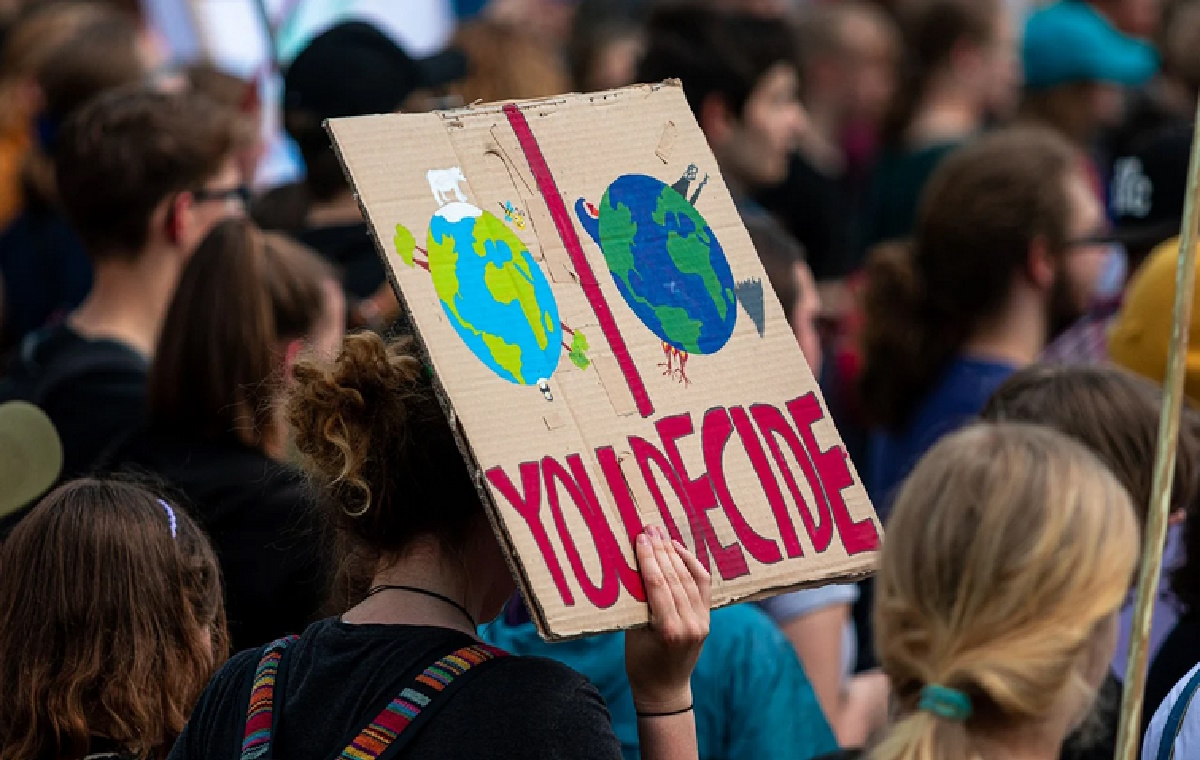 YOU DECIDE